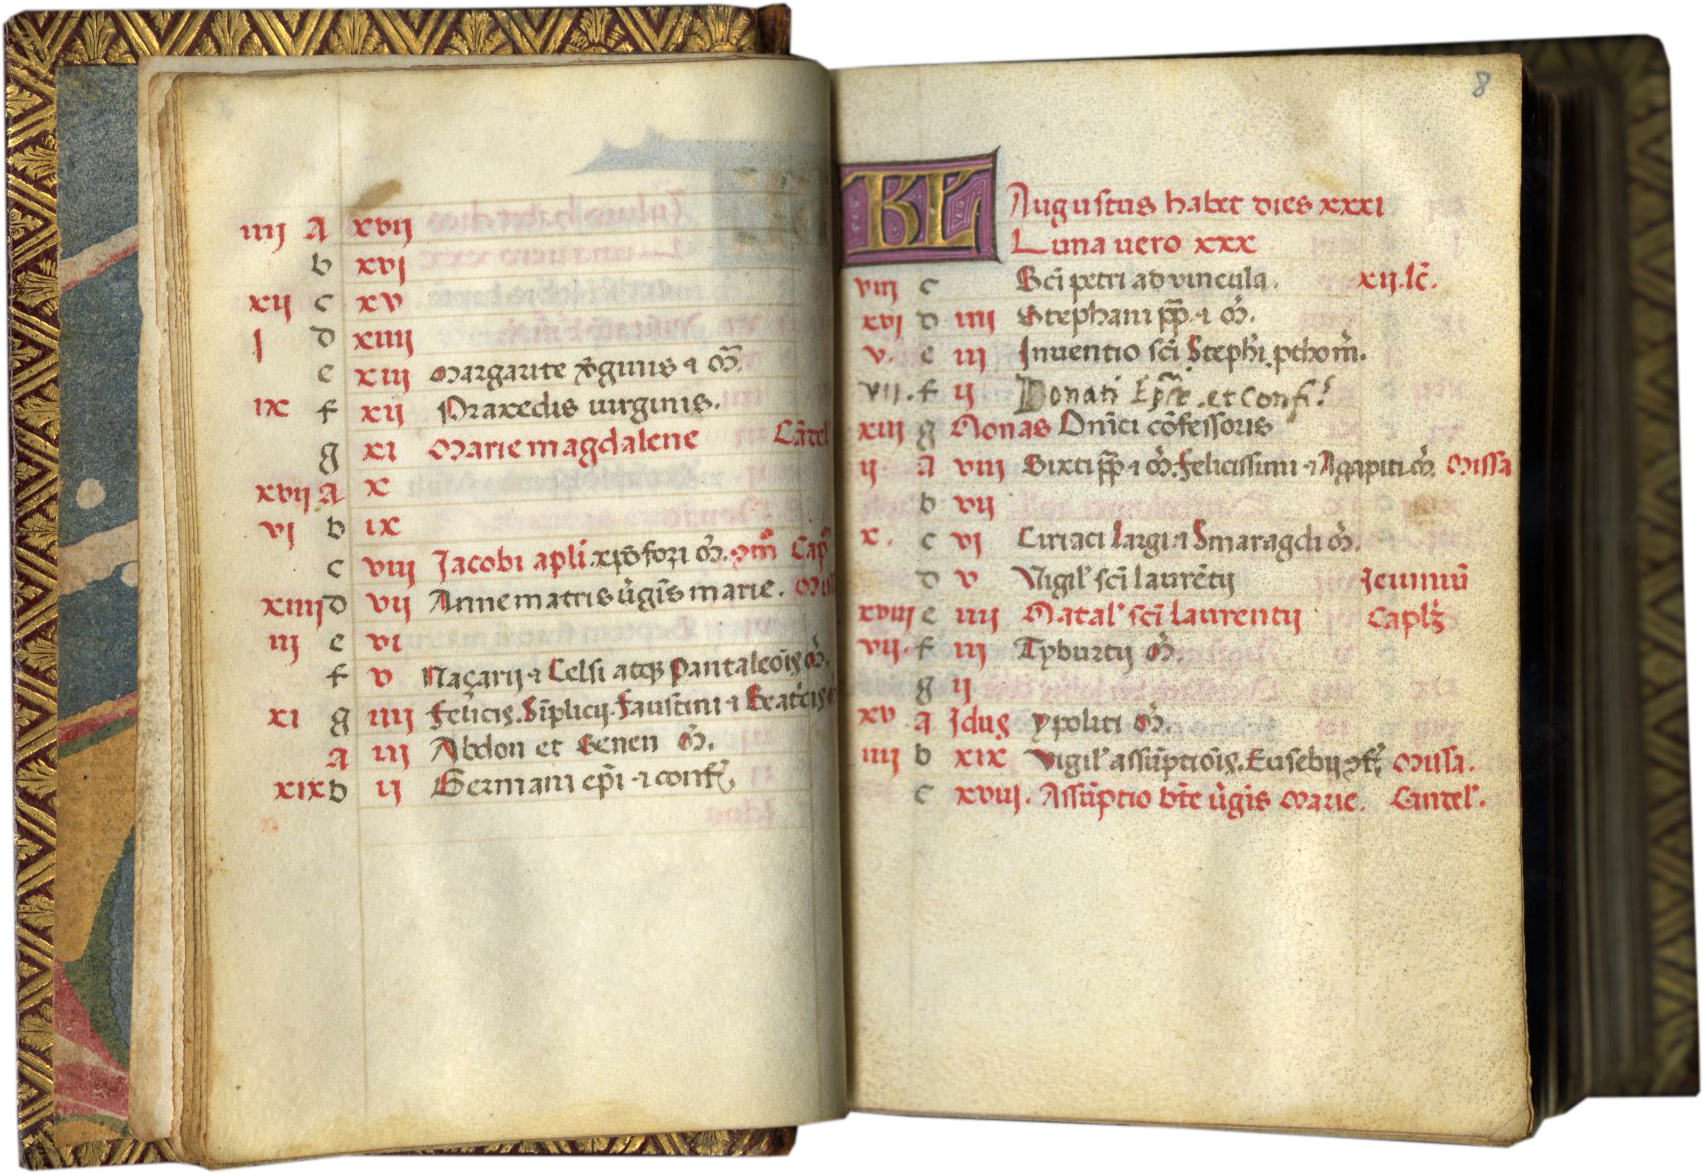 iiij A xvij
b xvj
xij c xv
j d xiiij
e xiij Margarite v̄ginis ⁊ m̄.
ix f xij Praxedis uirginis.
g xi Marie magdalene
xvij A x
vj b ix
c viij Jacobi apl̄i. xp̄ofori m̄.
xiiij d vij Anne matris ūgīs marie.
iij e vi
f v Naçarij ⁊ Celsi atqꝫ Pantaleōīs m̄.
xi g iiij Felicis. Sīplicij. Faustini ⁊ Beatͥcis
a iij Abdon et Senen m̄.
xix b ij Germani ep̄i ⁊ conf.
8
KL Augustus habet dies xxxi
Luna uero xxx
viij c Sc̄i petri ad vincula. xij.lc̄.
xvj d iiij Stephani pp̄ ⁊ m̄.
v. e iij Inuentio sc̄i Steph̄i. pthom̄.
vii. f ij Donati Ep̄i .et Conf.
xiij g Nonas Dn̄ici cōfessoris
ij a viij Sixti pp̄ ⁊ m̄. felicissimi ⁊ Agapiti m̄. Missa
b vij
x. c vj Ciriaci largi ⁊ Smaragdi m̄.
d v Vigil' sc̄i laurētij Jeiuniū
xviij e iiij Natal' sc̄i laurentij
vij. f iij Tyburtij m̄.
g ij
xv a Jdus ypoliti m̄.
iiij b xix Vigil' assūptiōis. Eusebij Missa.
c xviij. Assūptio bt̄e ūgīs Marie.